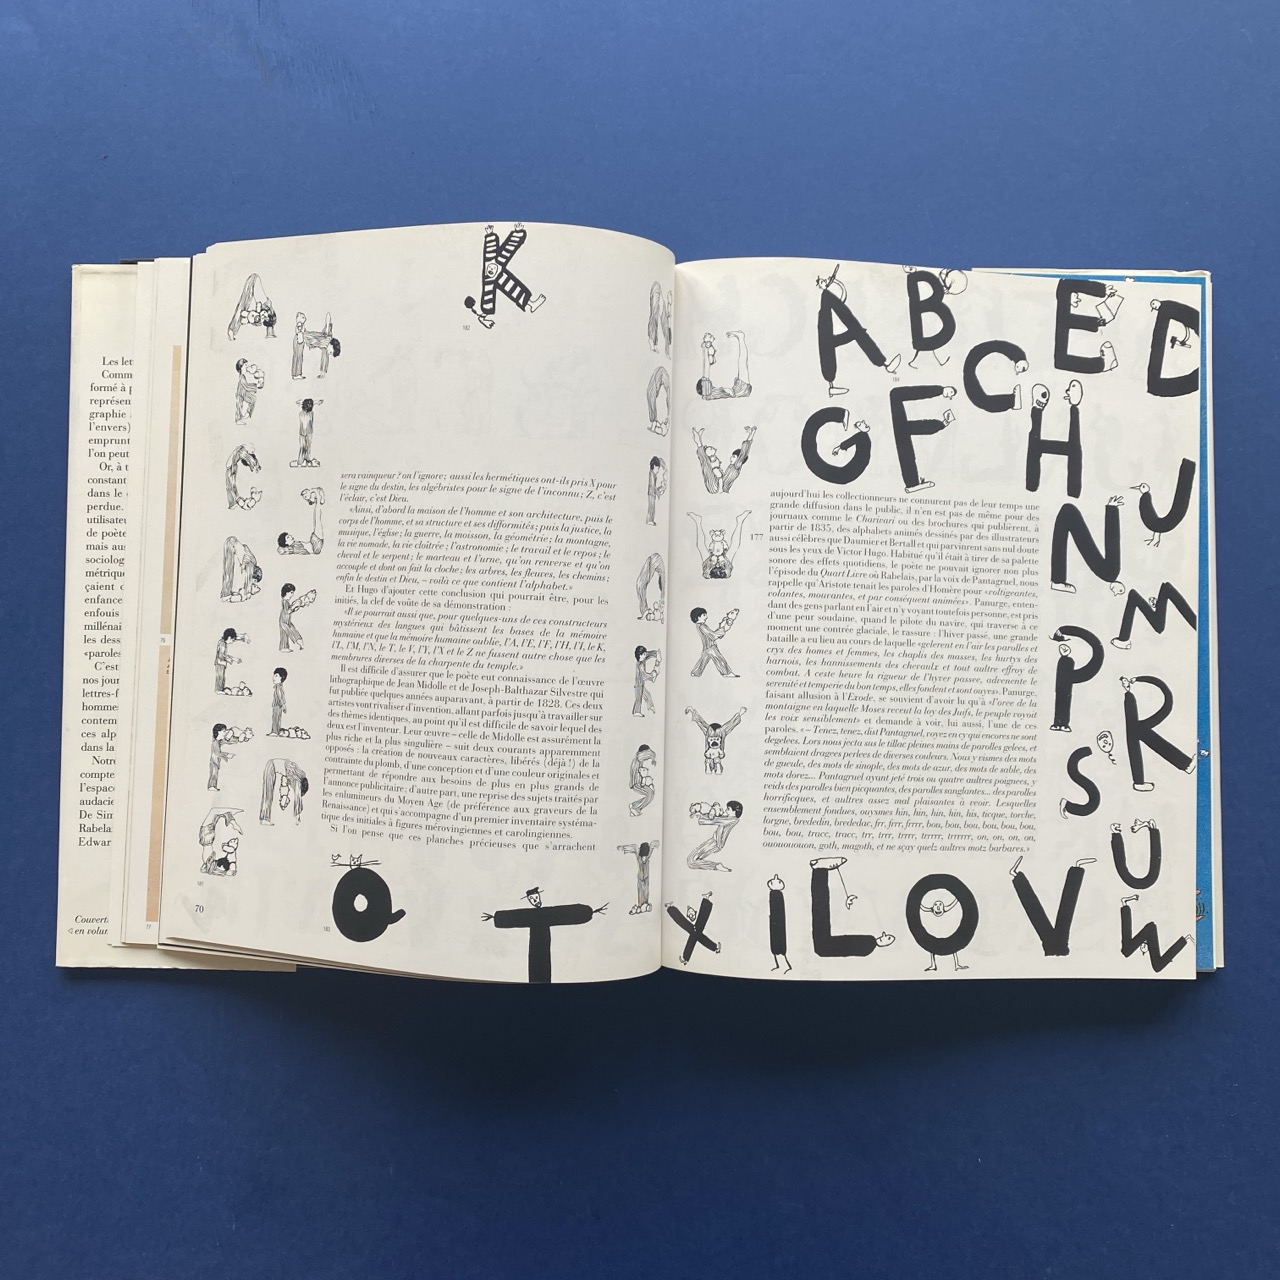 Les let
Comm
formé à p
représen
graphie
l'envers)
emprunt
l'on peut
Or, à t
constant
dans le
perdue.
utilisateu
de poète
mais aus
sociolog
métrique
çaient d
enfance
enfouis
millénai
les dess
«paroles
C'est
nos jour
lettres-f
hommes
contem
ces alp
dans la
Notre
compte
l'espace
audacie
De Sim
Rabela
Edwar
Couvert
en volun
77
K
182
sera vainqueur ? on l'ignore ; aussi les hermétiques ont-ils pris X pour
le signe du destin, les algébristes pour le signe de l'inconnu ; Z, c'est
l'éclair, c'est Dieu.
«Ainsi, d'abord la maison de l'homme et son architecture, puis le
corps de l'homme, et sa structure et ses difformités ; puis la justice, la
musique, l'église ; la guerre, la moisson, la géométrie ; la montagne,
la vie nomade, la vie cloîtrée ; l'astronomie ; le travail et le repos ; le
cheval et le serpent ; le marteau et l'urne, qu'on renverse et qu'on
accouple et dont on fait la cloche ; les arbres, les fleuves, les chemins ;
enfin le destin et Dieu, – voilà ce que contient l'alphabet.»
Et Hugo d'ajouter cette conclusion qui pourrait être, pour les
initiés, la clef de voûte de sa démonstration :
«Il se pourrait aussi que, pour quelques-uns de ces constructeurs
mystérieux des langues qui bâtissent les bases de la mémoire
humaine et que la mémoire humaine oublie, l'A, l'E, l'F, l'H, l'I, le K,
l'L, l'M, l'N, le T, le V, l'Y, l'X et le Z ne fussent autre chose que les
membrures diverses de la charpente du temple.»
Il est difficile d'assurer que le poète eut connaissance de l'œuvre
lithographique de Jean Midolle et de Joseph-Balthazar Silvestre qui
fut publiée quelques années auparavant, à partir de 1828. Ces deux
artistes vont rivaliser d'invention, allant parfois jusqu'à travailler sur
des thèmes identiques, au point qu'il est difficile de savoir lequel des
deux est l'inventeur. Leur œuvre – celle de Midolle est assurément la
plus riche et la plus singulière – suit deux courants apparemment
opposés : la création de nouveaux caractères, libérés (déjà !) de la
contrainte du plomb, d'une conception et d'une couleur originales et
permettant de répondre aux besoins de plus en plus grands de
l'annonce publicitaire ; d'autre part, une reprise des sujets traités par
les enlumineurs du Moyen Age (de préférence aux graveurs de la
Renaissance) et qui s'accompagne d'un premier inventaire systéma-
tique des initiales à figures mérovingiennes et carolingiennes.
Si l'on pense que ces planches précieuses que s'arrachent
181
70
183
Q T
A B C E D
184
G F H
J
N
M
P
R
S
U
W
177
aujourd'hui les collectionneurs ne connurent pas de leur temps une
grande diffusion dans le public, il n'en est pas de même pour des
journaux comme le Charivari ou des brochures qui publièrent, à
partir de 1835, des alphabets animés dessinés par des illustrateurs
aussi célèbres que Daumier et Bertall et qui parvinrent sans nul doute
sous les yeux de Victor Hugo. Habitué qu'il était à tirer de sa palette
sonore des effets quotidiens, le poète ne pouvait ignorer non plus
l'épisode du Quart Livre où Rabelais, par la voix de Pantagruel, nous
rappelle qu'Aristote tenait les paroles d'Homère pour «voltigeantes,
volantes, mourantes, et par conséquent animées». Panurge, enten-
dant des gens parlant en l'air et n'y voyant toutefois personne, est pris
d'une peur soudaine, quand le pilote du navire, qui traverse à ce
moment une contrée glaciale, le rassure : l'hiver passé, une grande
bataille a eu lieu au cours de laquelle «gelerent en l'air les paroles et
crys des homes et femmes, les chaplis des masses, les hurtys des
harnois, les hannissements des chevaulx et tout aultre effroy de
combat. A ceste heure la rigueur de l'hyver passee, advenente le
serenité et temperie du bon temps, elles fondent et sont ouyes». Panurge,
faisant allusion à l'Exode, se souvient d'avoir lu qu'à «l'oree de la
montaigne en laquelle Moses receut la loy des Juifs, le peuple voyoit
les voix sensiblement» et demande à voir, lui aussi, l'une de ces
paroles. «– Tenez, tenez, dist Pantagruel, voyez en cy qui encores ne sont
degelees. Lors nous jecta sus le tillac pleines mains de paroles gelees, et
semblaient dragees perlees de diverses couleurs. Nous y vismes des mots
de gueule, des mots de sinople, des mots de azur, des mots de sable, des
mots dorez... Pantagruel ayant jeté trois ou quatre aultres poignees, y
veids des paroles bien picquantes, des paroles sanglantes... des paroles
horrificques, et aultres assez mal plaisantes à veoir. Lesquelles
ensemblement fondues, ouysmes hin, hin, hin, hin, his, ticque, torche,
lorgne, brededin, brededac, frr, frrr, frrrr, bou, bou, bou, bou, bou, bou,
bou, bou, tracc, tracc, trr, trrr, trrrr, trrrr, trrrrr, trrrrrr, on, on, on, on,
ouououououn, goth, magoth, et ne sçay quelz aultres motz barbares.»
X I L O V